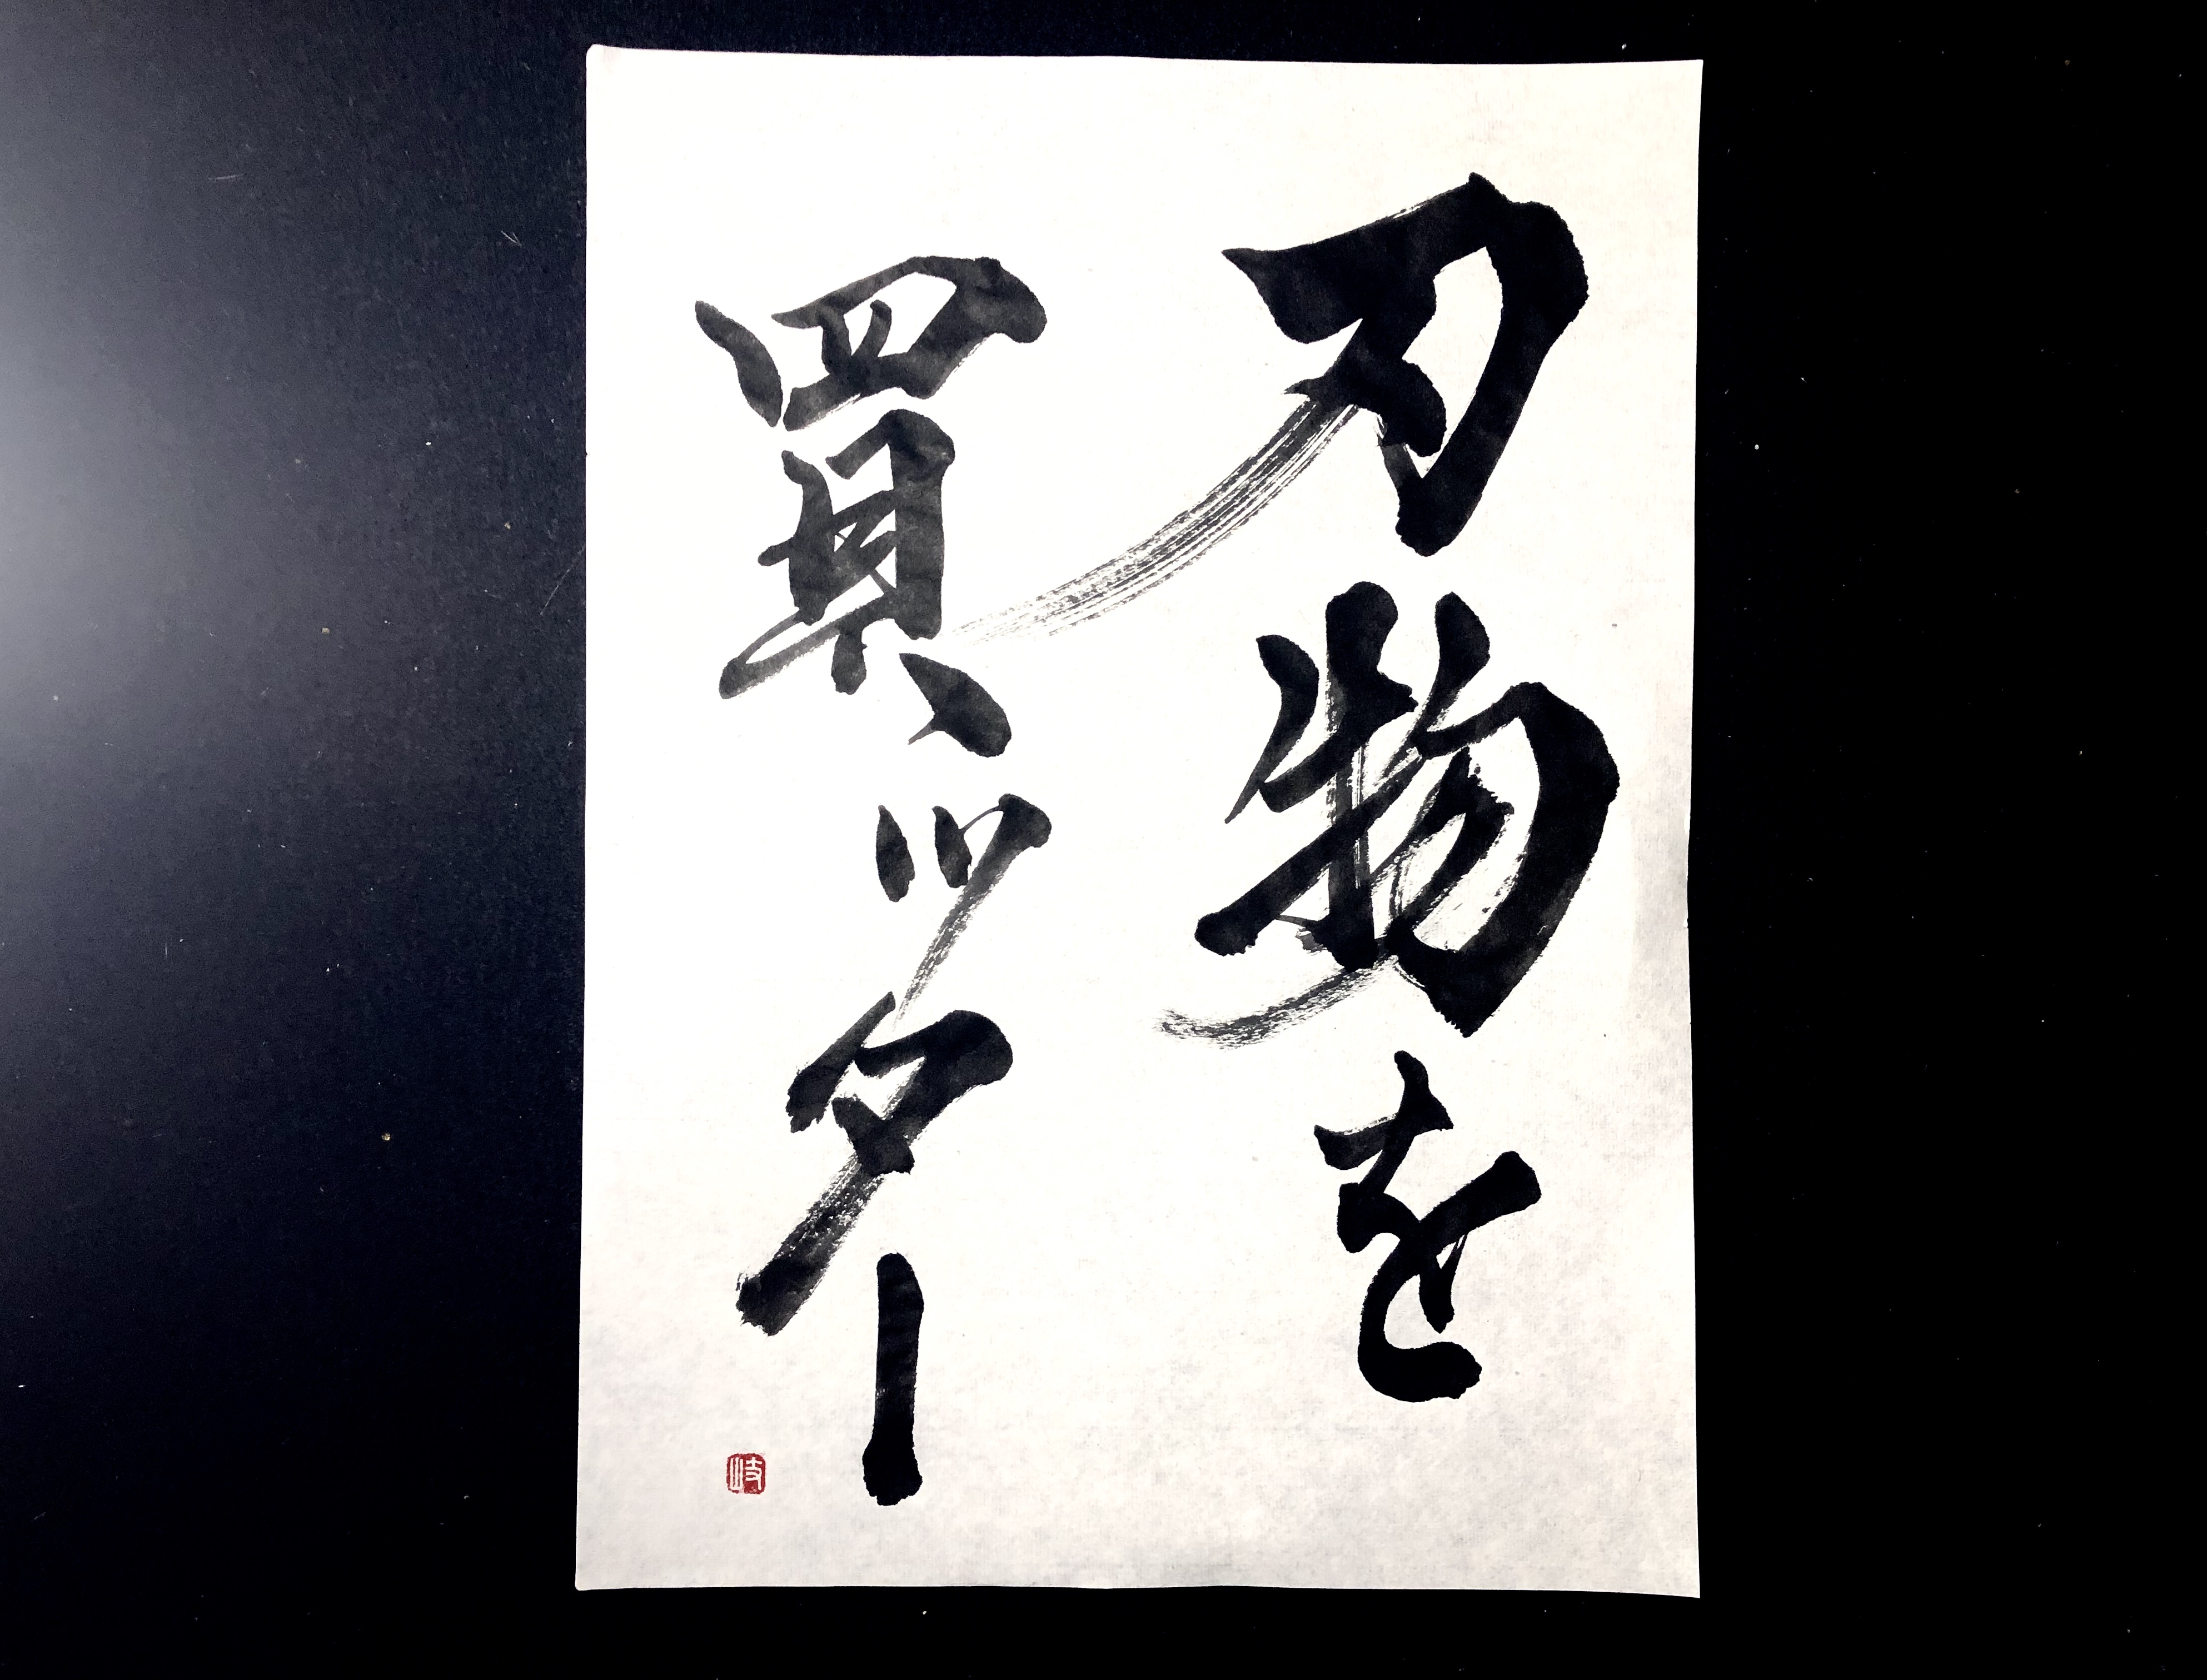 刃物を
買ッター
岐